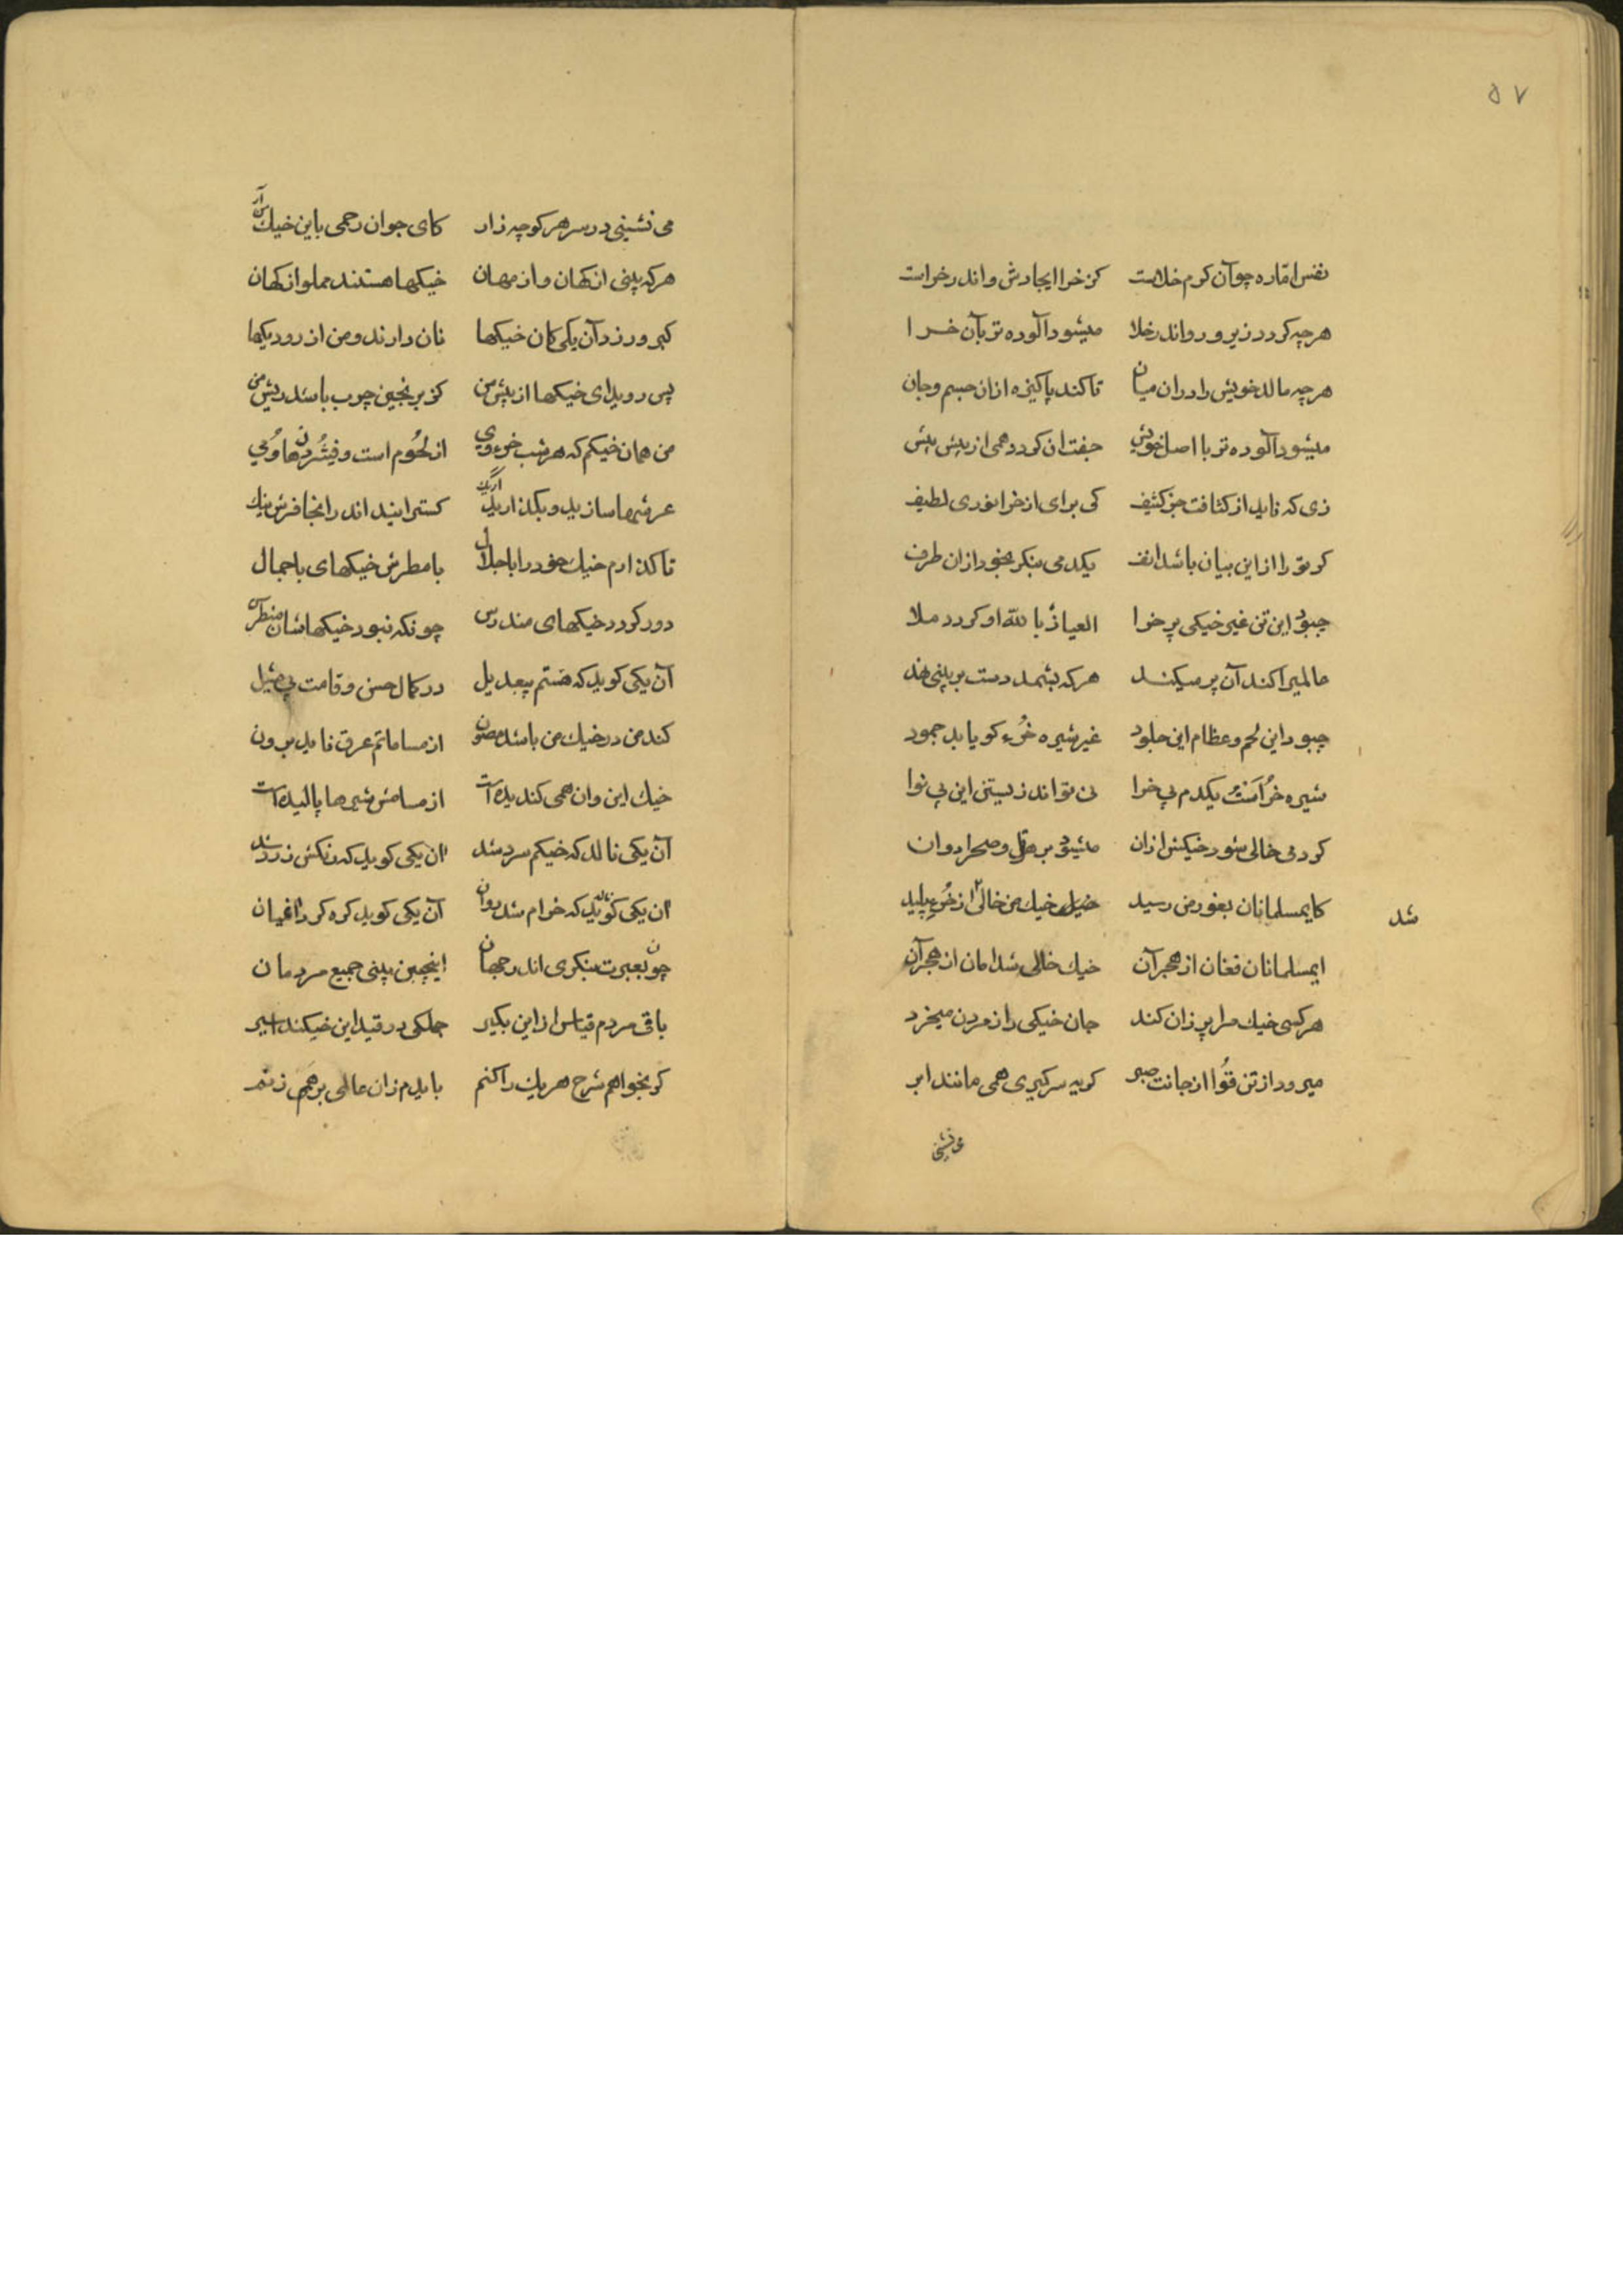 ۵۷
نفس اماره چو آن کرم خلاست کز خرا ایجادش و اندر خراست
هرچه کردد زیر و رو اندر خلا میشود آلوده تر بآن خرا
هرچه مالد خویش را در ان میان تا کند پاکیزه از ان جسم و جان
میشود آلوده تر با اصل خویش جفت ان کردد همی از پیش پیش
زی که ناید از کثافت جز کثیف کی برای از خرا نوری لطیف
کر تو را از این بیان باشد انف یکدمی بنکر بخود از ان طرف
چبود این تن غیر خیکی پر خرا العیاذ بالله او کردد ملا
عالمیرا کند آن پر میکند هرکه بشمد دست بر بینی نهد
چبود این لحم و عظام این جلود غیر شیره خُرء کو یابد جمود
شیره خُرأست یکدم بی خرا نی تواند زیستن این بی نوا
کر دمی خالی شود خیکش ازان میشود بر تل و صحرا دوان
کایمسلمانان بغور من رسید خیک من خالی شد از خُرء پلید
ایمسلمانان فغان از هجر آن خیک خالی شد امان از هجر آن
هر کسی خیک مرا پر زان کند جان خیکی را ز مردن میخرد
میرود از تن قوُا از جانت صبر کریه سرکیری همی مانند ابر
می نشینی
می نشینی در سر هر کوچه زار کای جوان رحمی باین خیک
هرکه بینی از کهان و از مهان خیکها هستند مملو از کهان
کبر ورزد آن یکی کان خیکها نان دارند و من از رودیکها
پس روید ای خیکها از پیش من کز برنجین چوب باشد ریش من
من همان خیکم که هر شب خرء وی از لحُوم است و
عرشها سازید و بکذارید کسترانید اندرانجا فرش نیک
تا کذارم خیک خود را با جلال با مطرش خیکهای باجمال
دور کردد خیکهای مندرس چونکه نبود خیکهاشان
آن یکی کوید که هستم بیعدیل در کمال حسن و قامت بی مثیل
کند من در خیک من باشد مصون از مساماتم عرق ناید برون
خیک این و ان همی کندیده است از مسامش شیرها پالیده است
آن یکی نالد که خیکم سرد شد ان یکی کوید که رنکش زرد شد
ان یکی کوید که خرام شد روان آن یکی کوید کره کردا
چون بعبرت بنکری اندر جهان اینچنین بینی جمیع مردمان
باقی مردم قیاس از این بکیر جملکی در قید این خیکند اسیر
کر بخواهم شرح هر یک را کنم بایدم زان عالمی برهم زنم